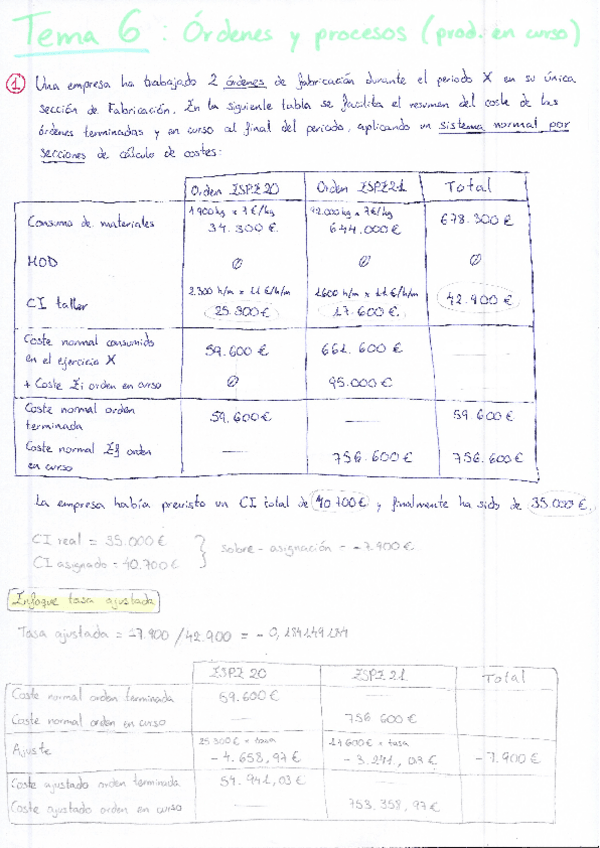 Tema 6: Órdenes y procesos (prod. en curso)
1 Una empresa ha trabajado 2 órdenes de fabricación durante el periodo X en su única
sección de Fabricación. En la siguiente tabla se facilita el resumen del coste de las
órdenes terminadas y en curso al final del periodo, aplicando un sistema normal por
secciones de cálculo de costes:
Orden ESPE20 Orden ESPE21 Total
Consumo de materiales
4.900 kg x 7 €/kg 92.000 kg x 7 €/kg
34.300 € 644.000 € 678.300 €
MOD ∅ ∅ ∅
CI taller
2.300 h/m x 11 €/h/m 1.600 h/m x 11 €/h/m
25.300 € 17.600 € 42.900 €
Coste normal consumido
en el ejercicio X 59.600 € 661.600 € —
+ Coste Ei orden en curso ∅ 95.000 €
Coste normal orden
terminada 59.600 € — 59.600 €
Coste normal Ef orden
en curso — 756.600 € 756.600 €
La empresa había previsto un CI total de 40.700 € y finalmente ha sido de 35.000 €.
CI real = 35.000 €
CI asignado = 40.700 € } sobre-asignación = -7.900 €
Enfoque tasa ajustada
Tasa ajustada = -7.900 / 42.900 = -0,184149184
ESPE20 ESPE21 Total
Coste normal orden terminada 59.600 € —
Coste normal orden en curso — 756 600 €
Ajuste
25 300 € x tasa 17 600 € x tasa
-4.658,97 € -3.241,03 € -7.900 €
Coste ajustado orden terminada 54.941,03 € —
Coste ajustado orden en curso — 753.358,97 €